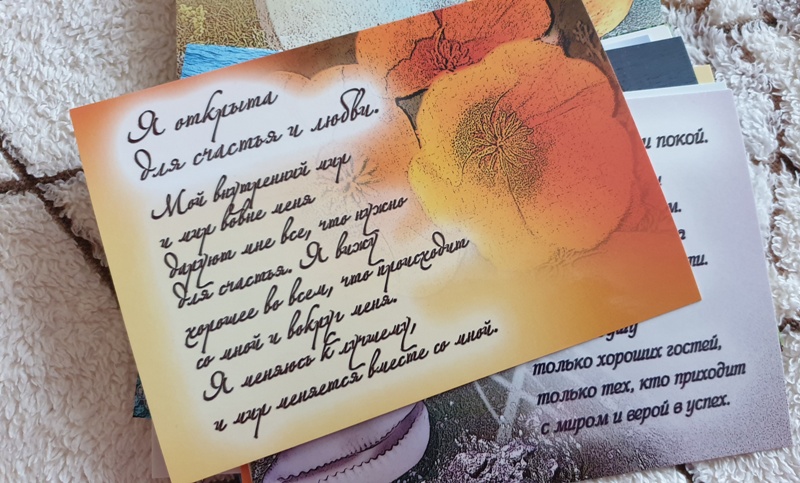 Я открыта
для счастья и любви.
Мой внутренний мир
и мир вовне меня
даруют мне все, что нужно
для счастья. Я вижу
хорошее во всем, что происходит
со мной и вокруг меня.
Я меняюсь к лучшему,
и мир меняется вместе со мной.
и покой.
только хороших гостей,
только тех, кто приходит
с миром и верой в успех.